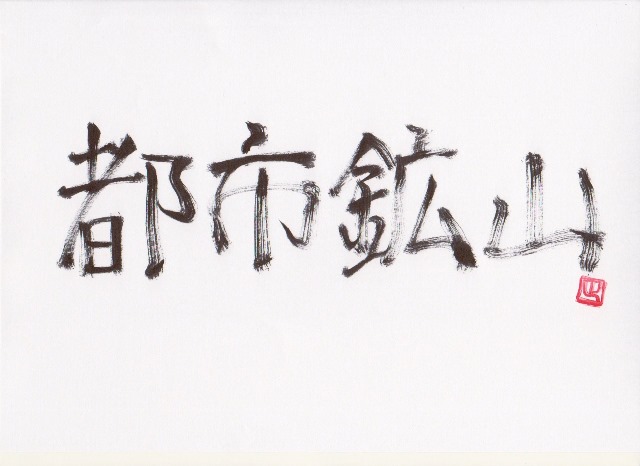 都市鉱山